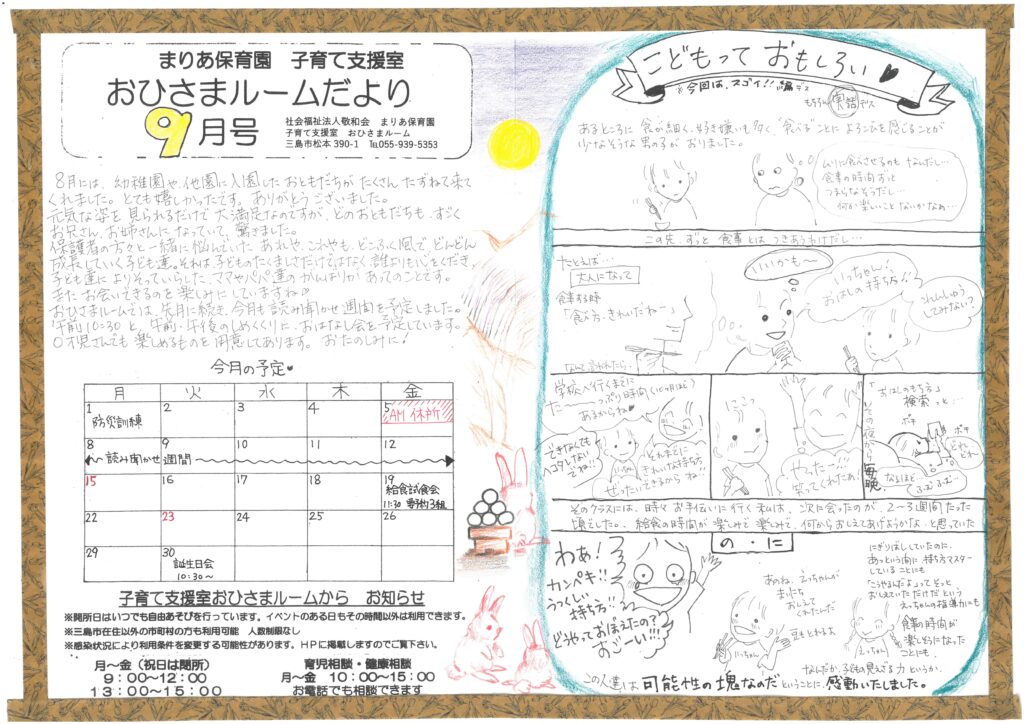 まりあ保育園 子育て支援室
おひさまルームだより
9月号
社会福祉法人敬和会 まりあ保育園
子育て支援室 おひさまルーム
三島市松本390-1 ℡055-939-5353
8月には、幼稚園や、他園に入園したおともだちがたくさんたずねて来て
くれました。とても嬉しかったです。ありがとうございました。
元気な姿を見られるだけで大満足なのですが、どのおともだちも、すごく
お兄さん、お姉さんになっていて、驚きました。
保護者の方々と一緒に悩んでいた、あれや、これやも、どこ吹く風で、どんどん
成長していく子ども達。それは子どものたくましさだけではなく誰よりも心をくだき、
子ども達によりそっていらした、ママやパパ達のがんばりがあってのことです。
またお会いできるのを楽しみにしていますね♡
おひさまルームでは、先月に続き、今月も読み聞かせ週間を予定しました。
午前10:30と、午前・午後のしめくくりに、おはなし会を予定しています。
0才児さんでも楽しめるものを用意してあります。おたのしみに!
今月の予定♥
月 火 水 木 金
1 防災訓練 2 3 4 5 AM 休所
8 9 10 11 12
読み聞かせ 週間
15 16 17 18 19 給食試食会 11:30 要予約3組
22 23 24 25 26
29 30 誕生日会 10:30~
子育て支援室おひさまルームから お知らせ
※開所日はいつでも自由あそびを行っています。イベントのある日もその時間以外は利用できます。
※三島市在住以外の市町村の方も利用可能 人数制限なし
※感染状況により利用条件を変更する可能性があります。HPに掲載しますのでご覧下さい。
月～金（祝日は閉所）
9：00～12：00
13：00～15：00
育児相談・健康相談
月～金 10：00～15：00
お電話でも相談できます
こどもって おもしろい♥
※今回は、スゴイ!!編デス
もちろん実話デス
あるところに食が細く、好き嫌いも多く、"食べる"ことによろこびを感じることが
少なそうな男の子がおりました。
ムリに食べさせるのもなんだし…
食事の時間ずっと
つまらなそうだし…
何か楽しいことないかなぁ…
この先、ずっと食事とはつきあうわけだし…
たとえば…
大人になって
食事する時
「食べ方、きれいだね〜」
なんて言われたら…
いいかも〜
いっちゃん!
おはしの持ち方!
れんしゅう
してみない?
学校へ行くまでに
た〜〜っぷり時間
あるからね♥
できなくても
ヘコタレない
でね!!
それまでに
きれいな持ち方
ぜったいできるからね
ニコッ
わたー!!
笑ってくれたぁ!
「おはしのもち方」
検索っと…
その夜から毎晩
ポチ
ポチ
どれどれ
なるほど…
ふむふむ…
そのクラスには、時々お手伝いに行く私は、次に会ったのが、2〜3週間たった
頃でした。給食の時間が楽しみで楽しみで、何からおしえてあげようかな、と思っていた
の・に
わぁ!
カンペキ!!
うつくしい
持ち方!!
どうやっておぼえたの?
すご〜い!!!
あのね、えっちゃんが
まいにち
おしえて
くれたんだ
豆もとれるよ
いっちゃん
えっちゃん
にぎりばししていたのに、
あっという間に持ち方マスター
していることにも
「こうやるんだよ」ってそっと
おしえていただけだという
えっちゃんの指導力にも
食事の時間が
楽しそうになった
ことにも、
なんだか、子どもの見えざる力というか、
この人達は可能性の塊なのだということに、感動いたしました。